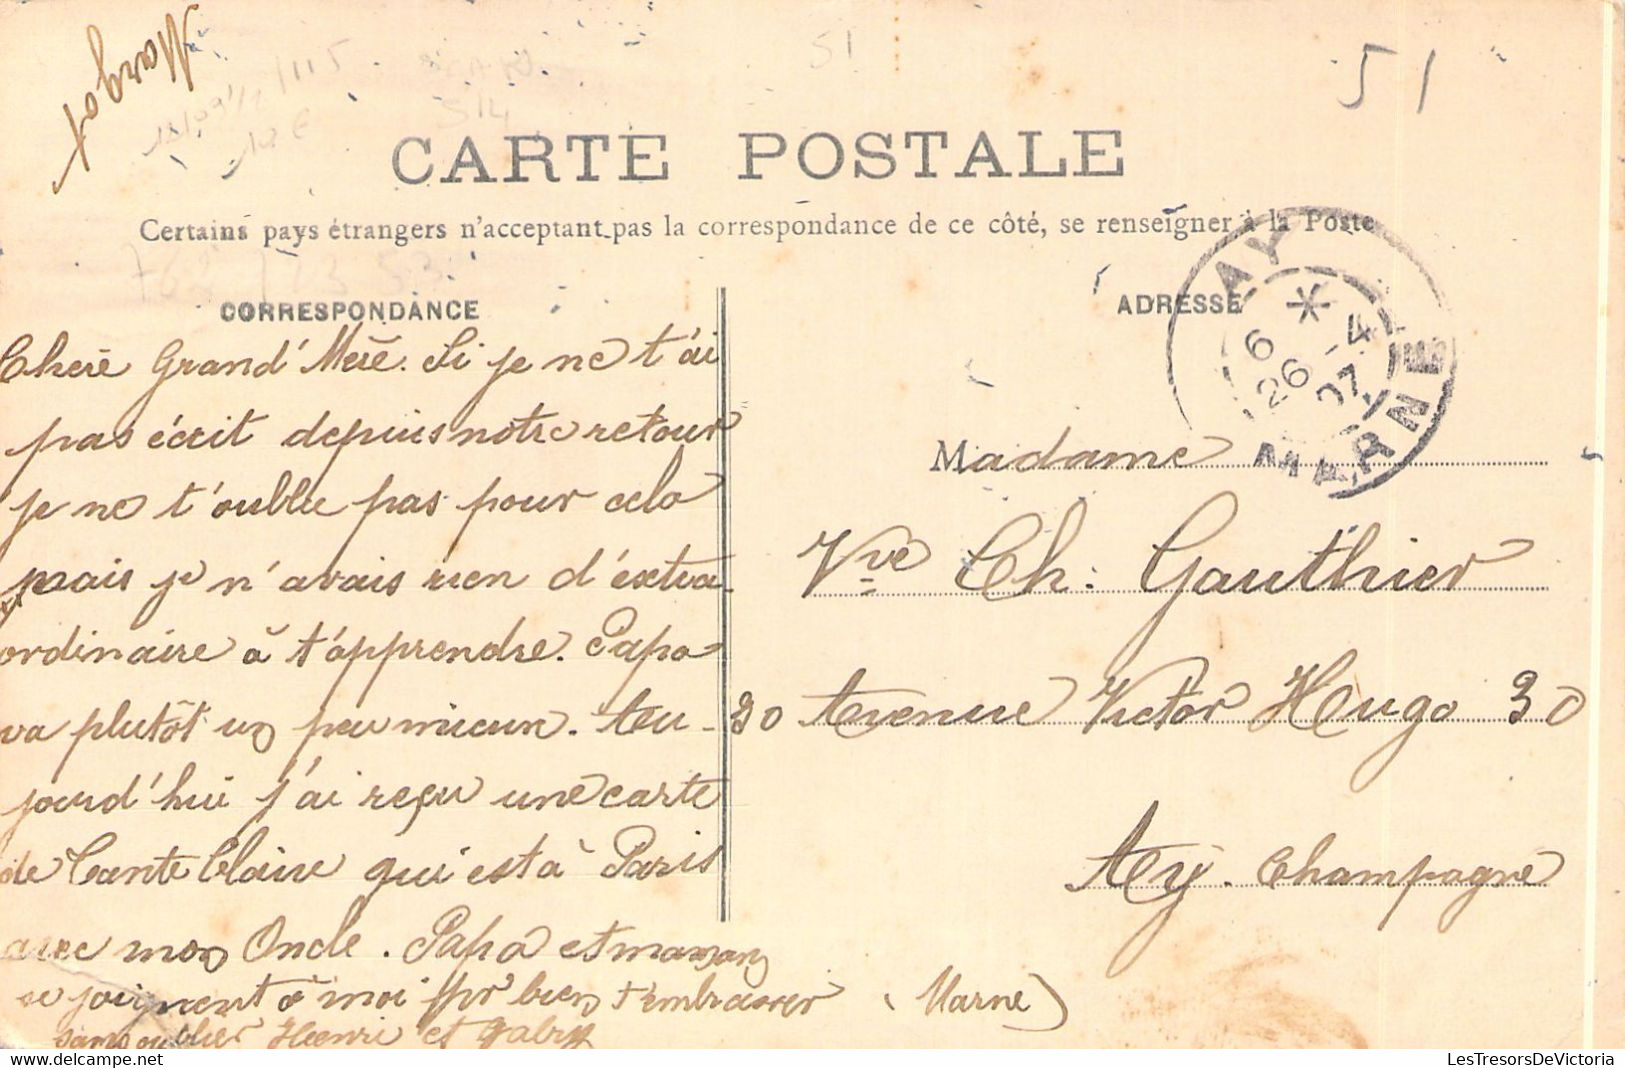 Margot
51
51
CARTE POSTALE
Certains pays étrangers n'acceptant pas la correspondance de ce côté, se renseigner à la Poste
CORRESPONDANCE
Chère Grand'Mère. Si je ne t'ai
pas écrit depuis notre retour
je ne t'oublie pas pour cela
mais je n'avais rien d'extra-
ordinaire à t'apprendre. Papa
va plutôt un peu mieux. Au-
jourd'hui j'ai reçu une carte
de Tante Claire qui est à Paris
avec mon Oncle. Papa et maman
se joignent à moi pr bien t'embrasser
sans oublier Henri et Gaby
ADRESSE
AY
6
26 - 4
07
MARNE
Madame
Vve Ch. Gauthier
30 Avenue Victor Hugo 30
Ay. Champagne
(Marne)
LesTresorsDeVictoria